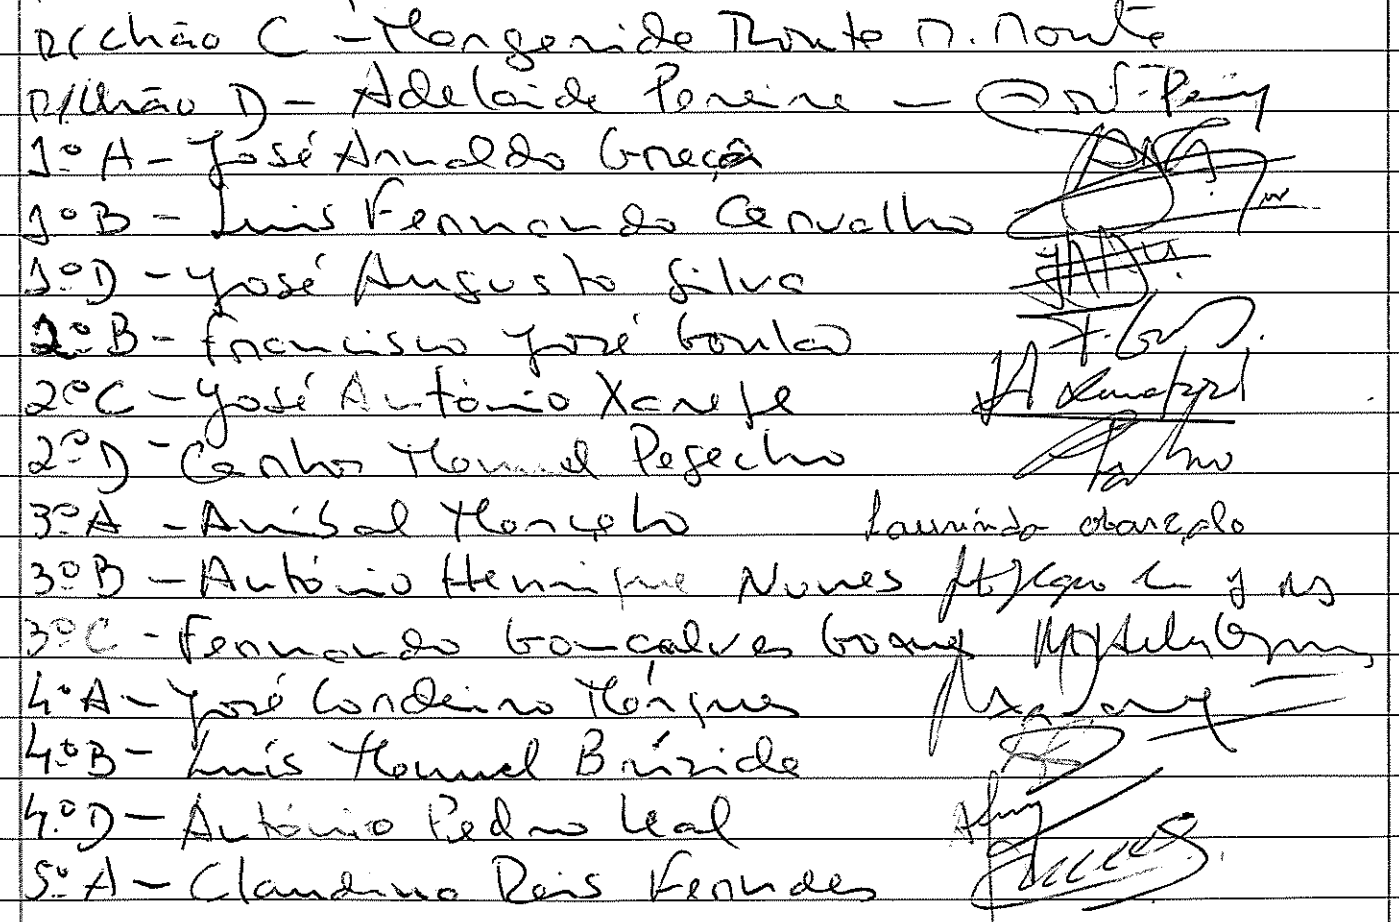 R/Chão C - Margarida Monte M. Monte
R/Chão D - Adelaide Pereira -
1º A - José Arnaldo Graça
1º B - Luís Fernando Carvalho
1º D - José Augusto Silva
2º B - Francisco José Goulão
2º C - José António Xarepe
2º D - Carlos Manuel Pegacho
3º A - Aníbal Marçalo Laurinda Marçalo
3º B - António Henrique Nunes
3º C - Fernando Gonçalves Gomes
4º A - José Cordeiro Márques
4º B - Luís Manuel Brízida
4.º D - António Pedro Leal
5º A - Claudino Reis Fernandes